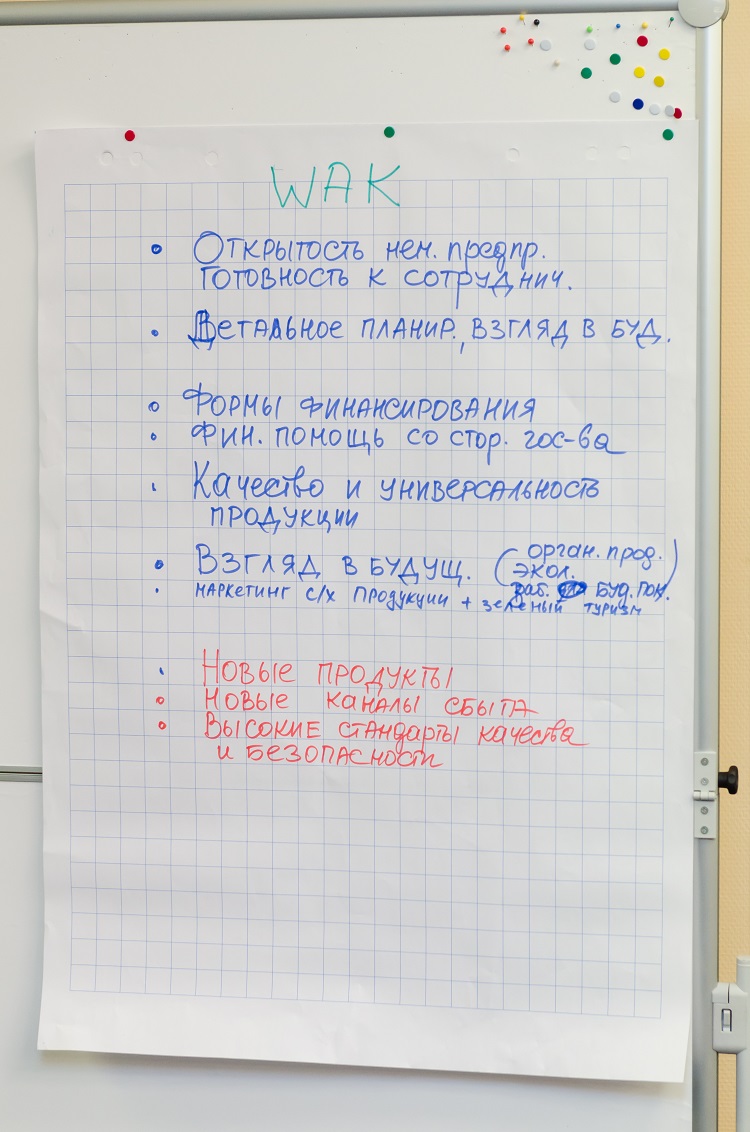 WAK
• Открытость нем. предпр.
готовность к сотруднич.
• Детальное планир., взгляд в буд.
• Формы финансирования
• Фин. помощь со стор. гос-ва
• Качество и универсальность
продукции
• Взгляд в будущ. (орган. прод.
экол.
раб. буд. пок.)
• маркетинг с/х продукции + зеленый туризм
• Новые продукты
• Новые каналы сбыта
• Высокие стандарты качества
и безопасности